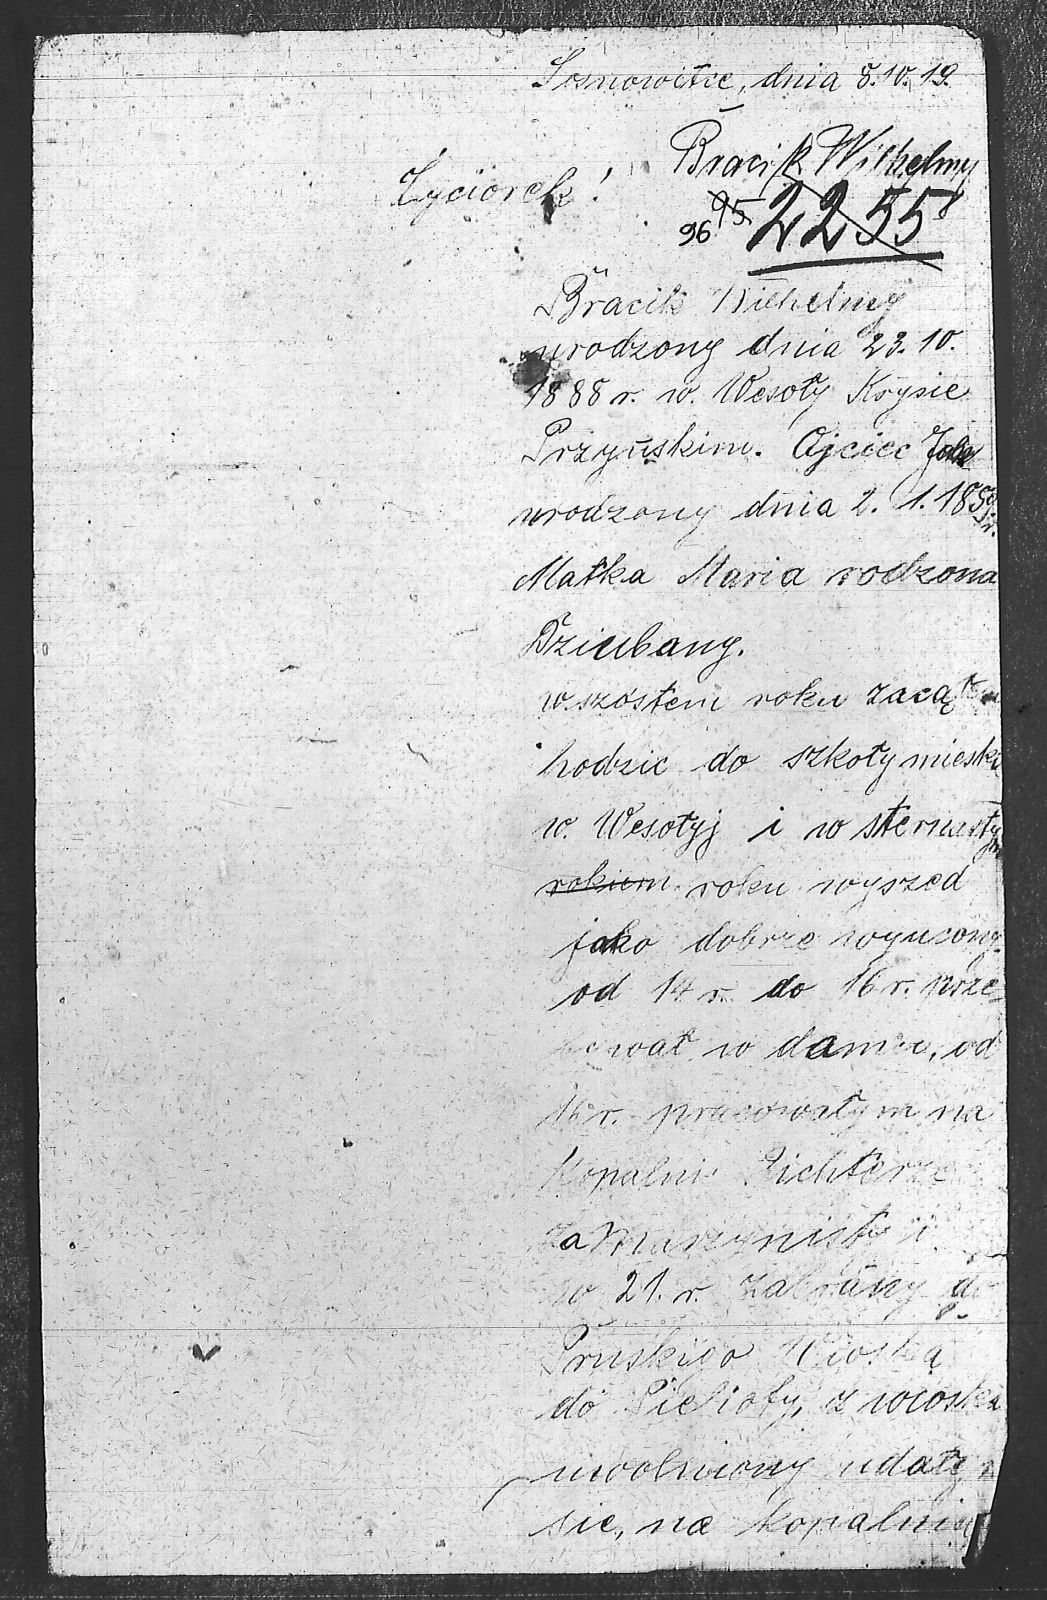 Sosnowitce, dnia 8.10.19.
Bracik Wilhelmy
Życiorek!
96 95 2255
Bracik Wilhelmy
urodzony dnia 23.10.
1888 r. w. Wesoły Krysie
Przyuskim. Ojciec
urodzony dnia 2. 1. 185
Matka Maria rodzona
Dziubany.
w szóstem roku zacąłem
hodzic do szkoły mieski
w. Wesołyj i w sternasty
rokiem roku wyszed
jako dobrze wyucony
od 14 r. do 16 r. prze-
wał w damu, od
16 r. pracowałym na
Kopalni Richterze
za Marzynisty i
w 21. r. zabrany do
Pruskigo Wioska
do Piehoty, z wioska
uwolniony udały
sie, na kopalnie